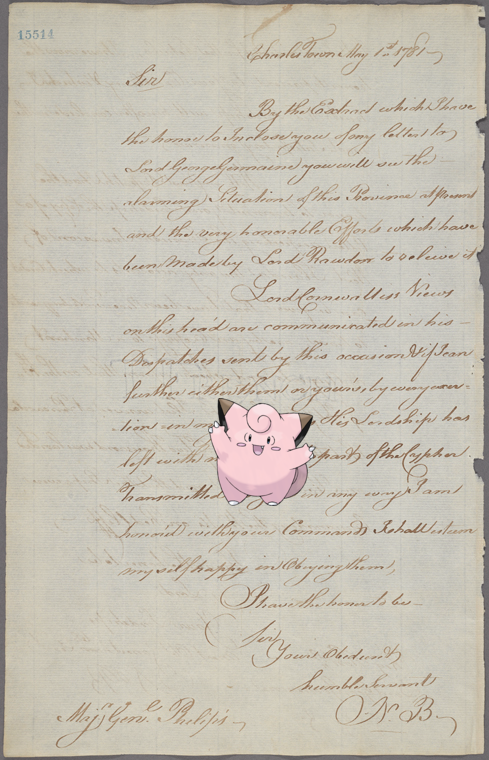 15514
Charles Towne May 1st 1781
Sir
By the Extract which I have
the honor to Inclose you of my letter to
Lord George Germaine you will see the
alarming Situation of this Province at present
and the very honorable Efforts which have
been Made by Lord Rawdon to relieve it
Lord Cornwallis's Views
on this head are communicated in his
Despatches sent by this occasion & if I can
further either them or your's by every exer-
tion in my His Lordship has
left with part of the Cypher
Transmitted in any way I am
honor'd with your Commands I shall esteem
myself happy in Obeying them,
I have the honor to be
Sir
Your Obedient
humble Servant
N. B.
Majr. Genl. Philips